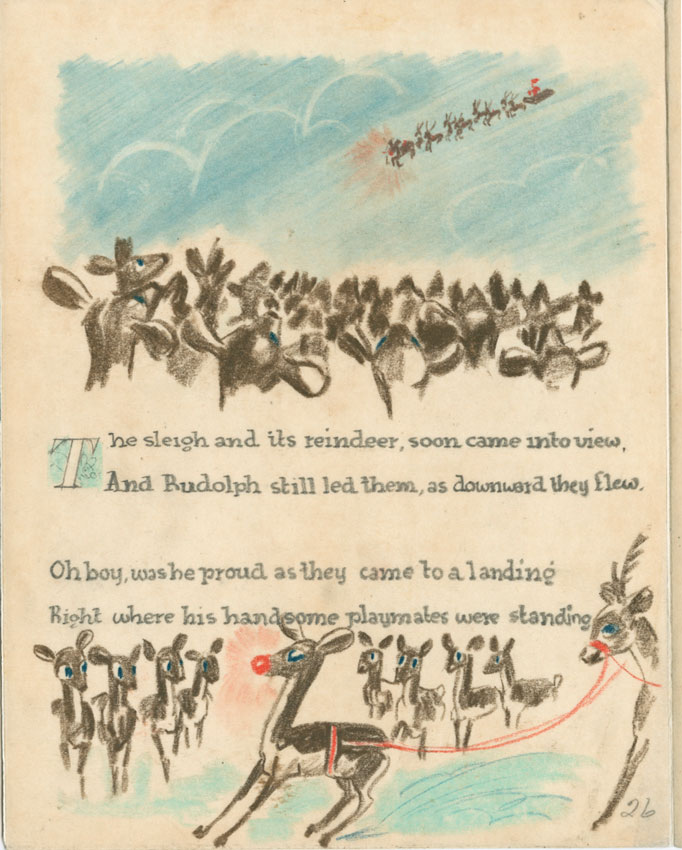 The sleigh and its reindeer, soon came into view,
And Rudolph still led them, as downward they flew.
Oh boy, was he proud as they came to a landing
Right where his handsome playmates were standing
26